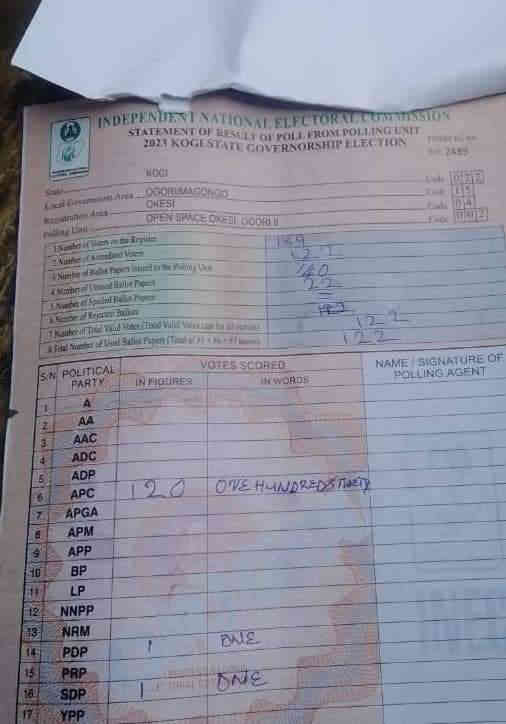 INDEPENDENT NATIONAL ELECTORAL COMMISSION
STATEMENT OF RESULT OF POLL FROM POLLING UNIT
2023 KOGI STATE GOVERNORSHIP ELECTION
2489
State KOGI Code 022
Local Government Area OGORI/MAGONGO Code 15
Registration Area OKESI Code 04
Polling Unit OPEN SPACE OKESI, OGORI II Code 002
1.Number of Voters on the Register
2.Number of Accredited Voters 122
3.Number of Ballot Papers Issued to the Polling Unit 140
4.Number of Unused Ballot Papers 22
5.Number of Spoiled Ballot Papers
6.Number of Rejected Ballots
7.Number of Total Valid Votes (Total Valid Votes cast for all parties) 122
8.Total Number of Used Ballot Papers 122
S/N POLITICAL PARTY VOTES SCORED NAME / SIGNATURE OF POLLING AGENT
IN FIGURES IN WORDS
1 A
2 AA
3 AAC
4 ADC
5 ADP
6 APC 120 ONE HUNDRED
7 APGA
8 APM
9 APP
10 BP
11 LP
12 NNPP
13 NRM
14 PDP 1 ONE
15 PRP
16 SDP 1 ONE
17 YPP